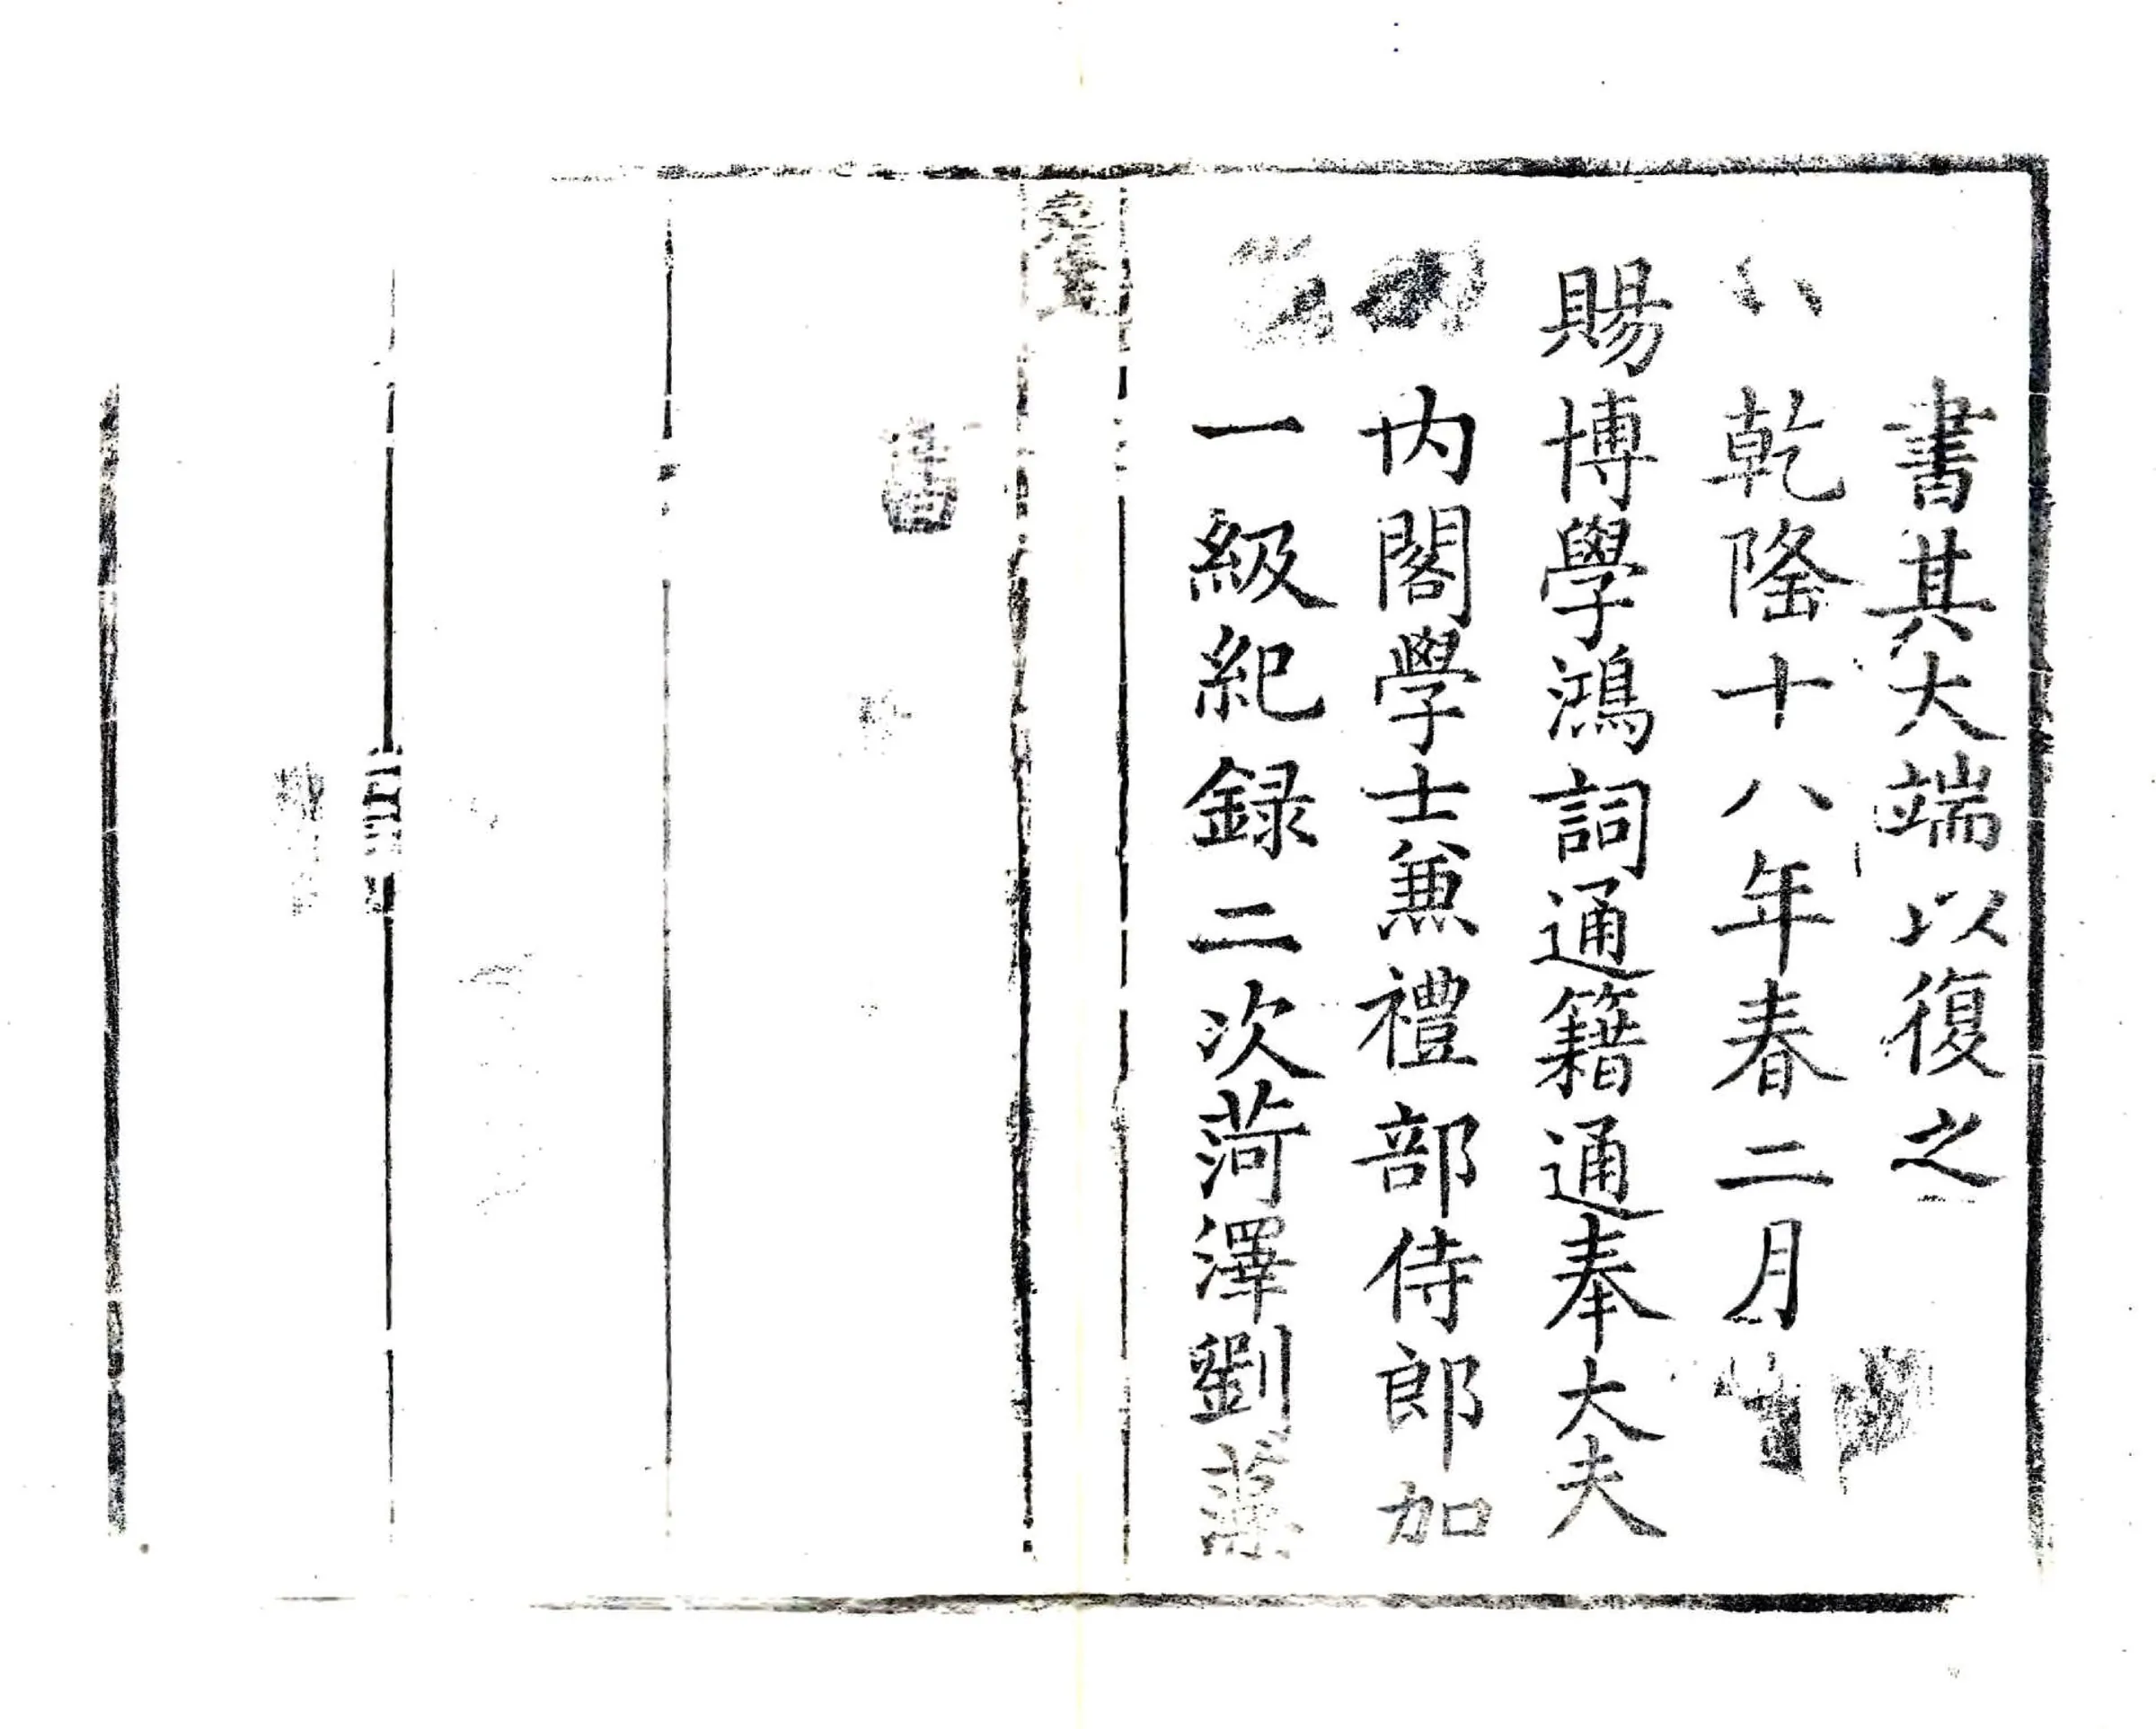 書其大端以復之
乾隆十八年春二月
賜博學鴻詞通籍通奉大夫
内閣學士兼禮部侍郎加
一級紀録二次菏澤劉藻